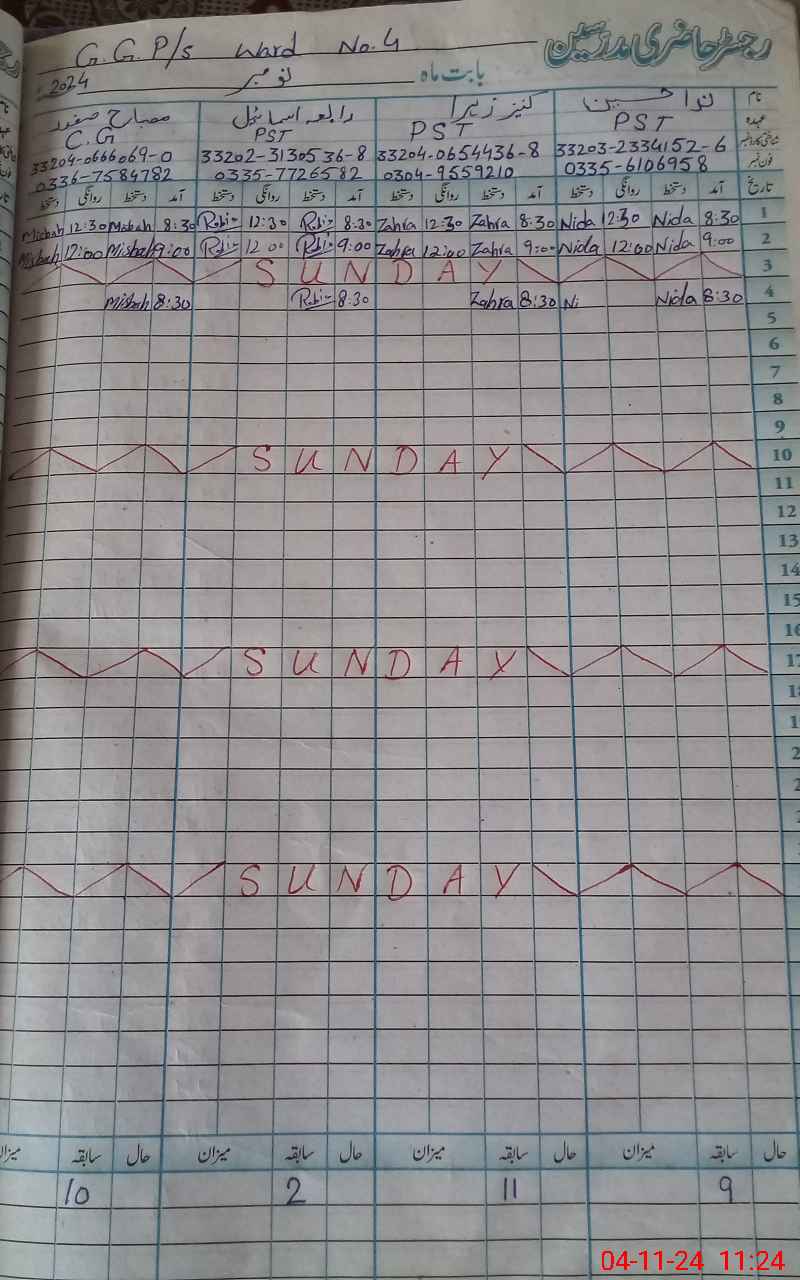 رجسٹر حاضری مدرسین
G.G.P/s Ward No.4
بابت ماہ نومبر 2024
نام ندا حسین کنیز زہرا رابعہ اسماعیل مصباح صفدر
عہدہ PST PST PST C.G
شناختی کارڈ نمبر 33203-2334152-6 33204-0654436-8 33202-3130536-8 33204-0666069-0
فون نمبر 0335-6106958 0304-9559210 0335-7726582 0336-7584782
تاریخ آمد دستخط روانگی دستخط آمد دستخط روانگی دستخط آمد دستخط روانگی دستخط آمد دستخط روانگی دستخط
1 8:30 Nida 12:30 Nida 8:30 Zahra 12:30 Zahra 8:30 Rabi 12:30 Rabi 8:30 Misbah 12:30 Misbah
2 9:00 Nida 12:00 Nida 9:00 Zahra 12:00 Zahra 9:00 Rabi 12:00 Rabi 9:00 Misbah 12:00 Misbah
3 SUNDAY
4 8:30 Nida Ni 8:30 Zahra 8:30 Rabi 8:30 Misbah
5
6
7
8
9
10 SUNDAY
11
12
13
14
15
16
17 SUNDAY
18
1
2
2
SUNDAY
حال سابقہ میزان حال سابقہ میزان حال سابقہ میزان حال سابقہ میزان
9 11 2 10
04-11-24 11:24